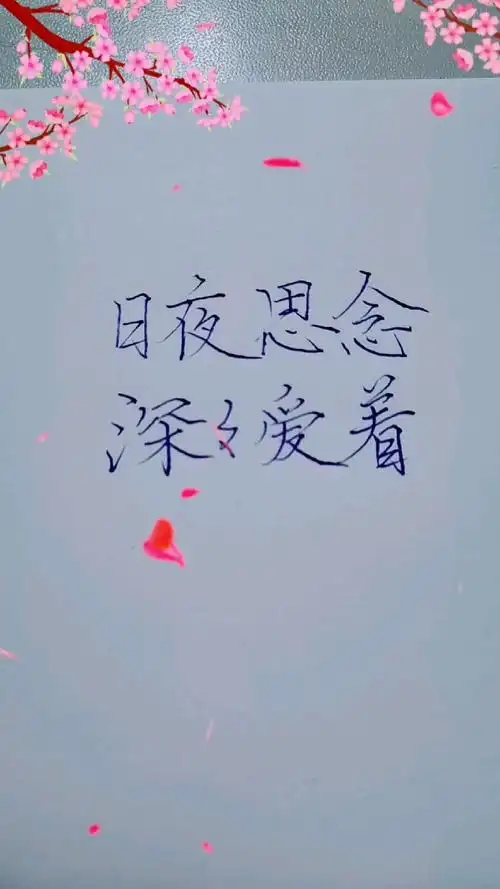 日夜思念
深々爱着